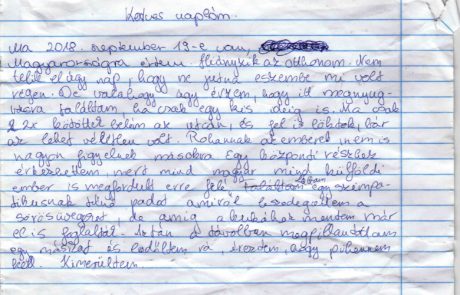 Kedves naplóm.
Ma 2018. szeptember 19-e van,
Magyarországra értem hiányzik az otthonom. Nem
telik el úgy nap, hogy ne jutna eszembe mi volt
régen. De valahogy úgy érzem, hogy itt megnyug-
vásra találtam, ha csak egy kis ideig is. Ma csak
2x kötöttek belém az utcán, és fel is löktek, bár
az lehet véletlen volt. Rohannak az emberek, nem is
nagyon figyelnek másokra. Egy központi részhez
érkeztem, mert mind magyar mind külföldi
ember is megfordult erre felé. Találtam egy szimpa-
tikusnak tűnő padot amiről leszedegettem a
sörösüvegeket, de amíg a kukához mentem már
el is foglalták. Aztán a távolban megpillantottam
egy másikat és ledőltem rá, éreztem, hogy pihennem
kell. Kimerültem.